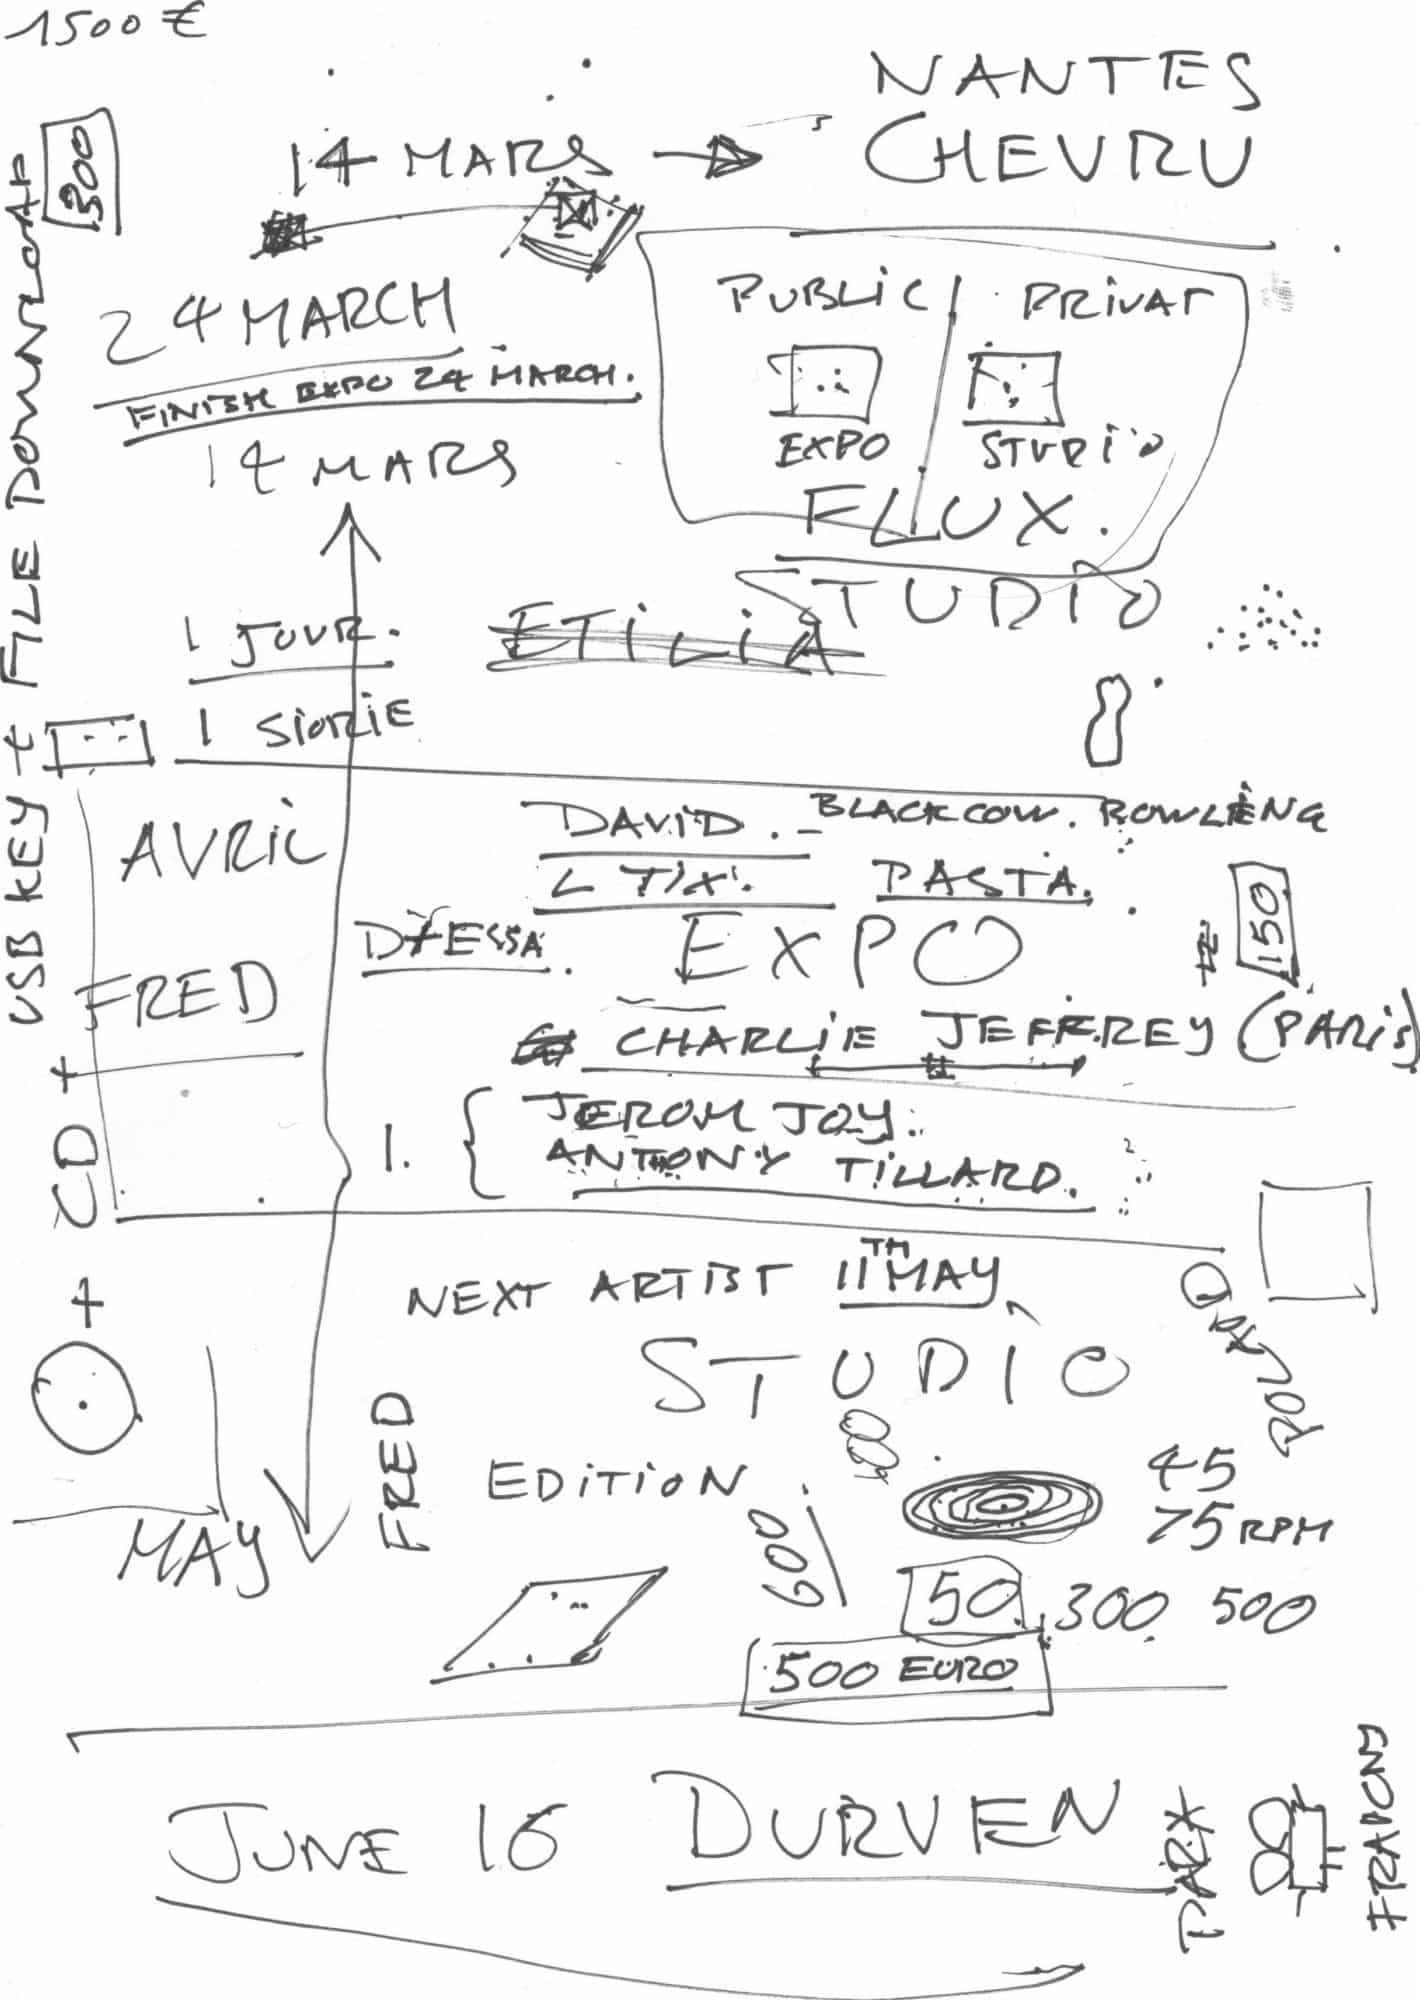 1500 €
NANTES
14 MARS → CHEVRU
300
24 MARCH
PUBLIC / PRIVAT
FINISH EXPO 24 MARCH.
EXPO STUDIO
14 MARS
FLUX.
STUDIO
1 JOUR.
ETILIA
1 SIORIE
CD + USB KEY + FILE DOWNLOAD
DAVID. - BLACKCOW. BOWLENG
AVRIL
LTIX. PASTA.
150
EXPO
FRED
CHARLIE JEFFREY (PARIS)
1. { JEROM JOY.
ANTHONY TILLARD.
+
NEXT ARTIST 11TH MAY
STUDIO
FRED
EDITION
600
45
75 RPM
MAY
50 300 500
500 EURO
JUNE 16 DURVEN